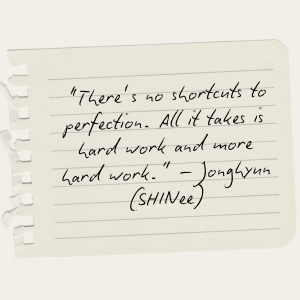 "There's no shortcuts to
perfection. All it takes is
hard work and more
hard work." - Jonghyun
(SHINee)